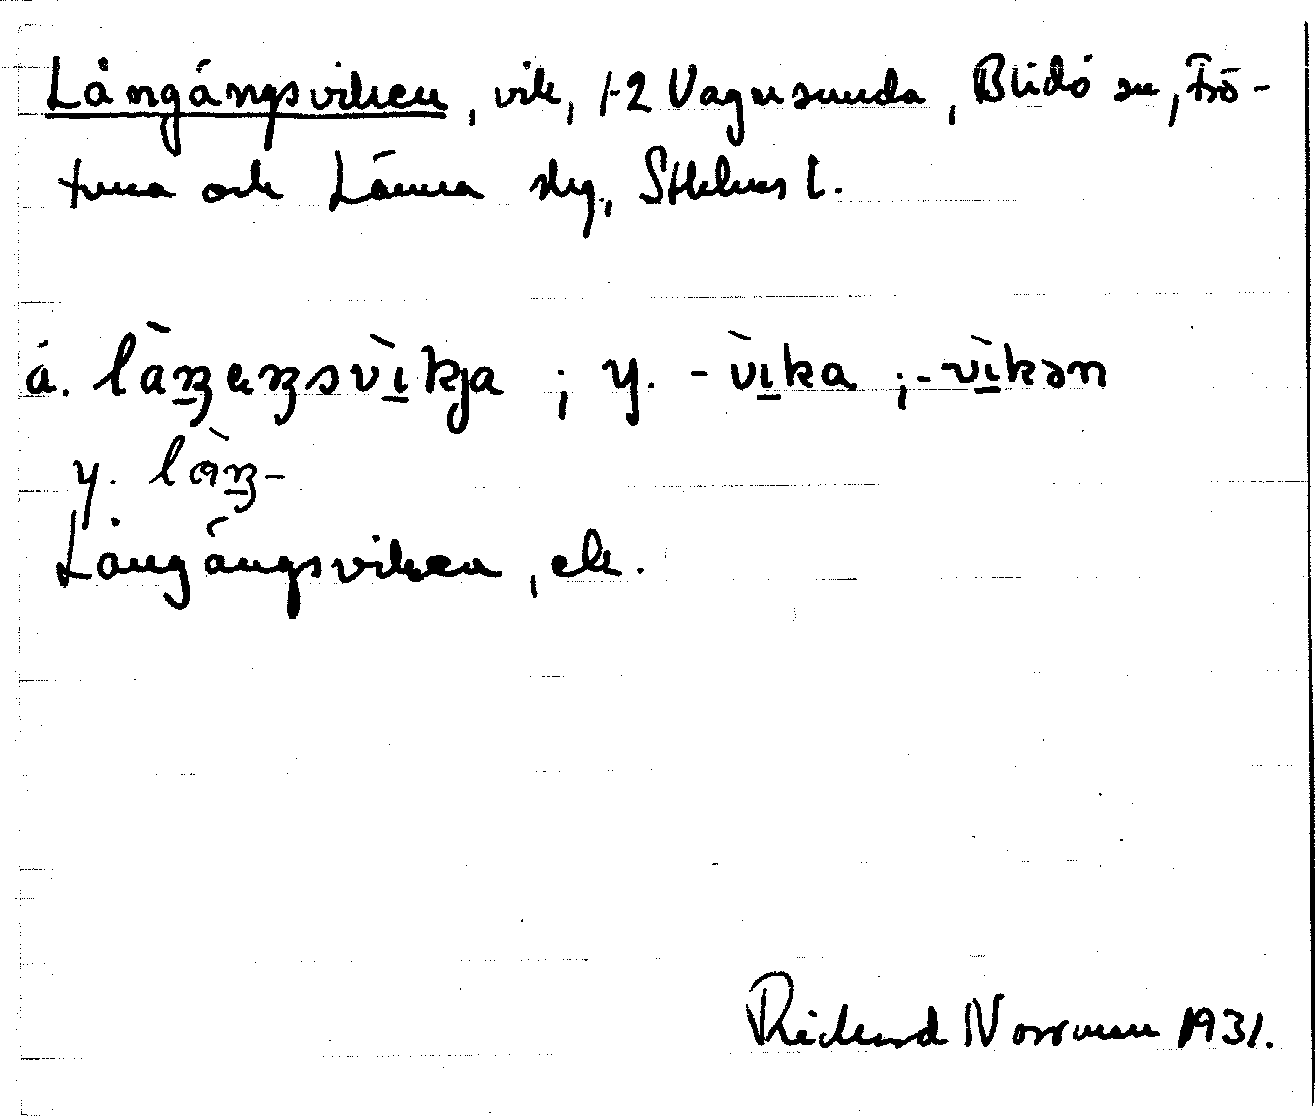 Långängsviken, vik, 1-2 Vagnsunda, Blidö sn, Frö-
tuna och Länna slg, Sthlms l.
ä. làŋeŋsvìkja ; y. -vìka ; -vìkən
y. lɑ̀ŋ-
Långängsviken, ek.
Richard Norrman 1931.